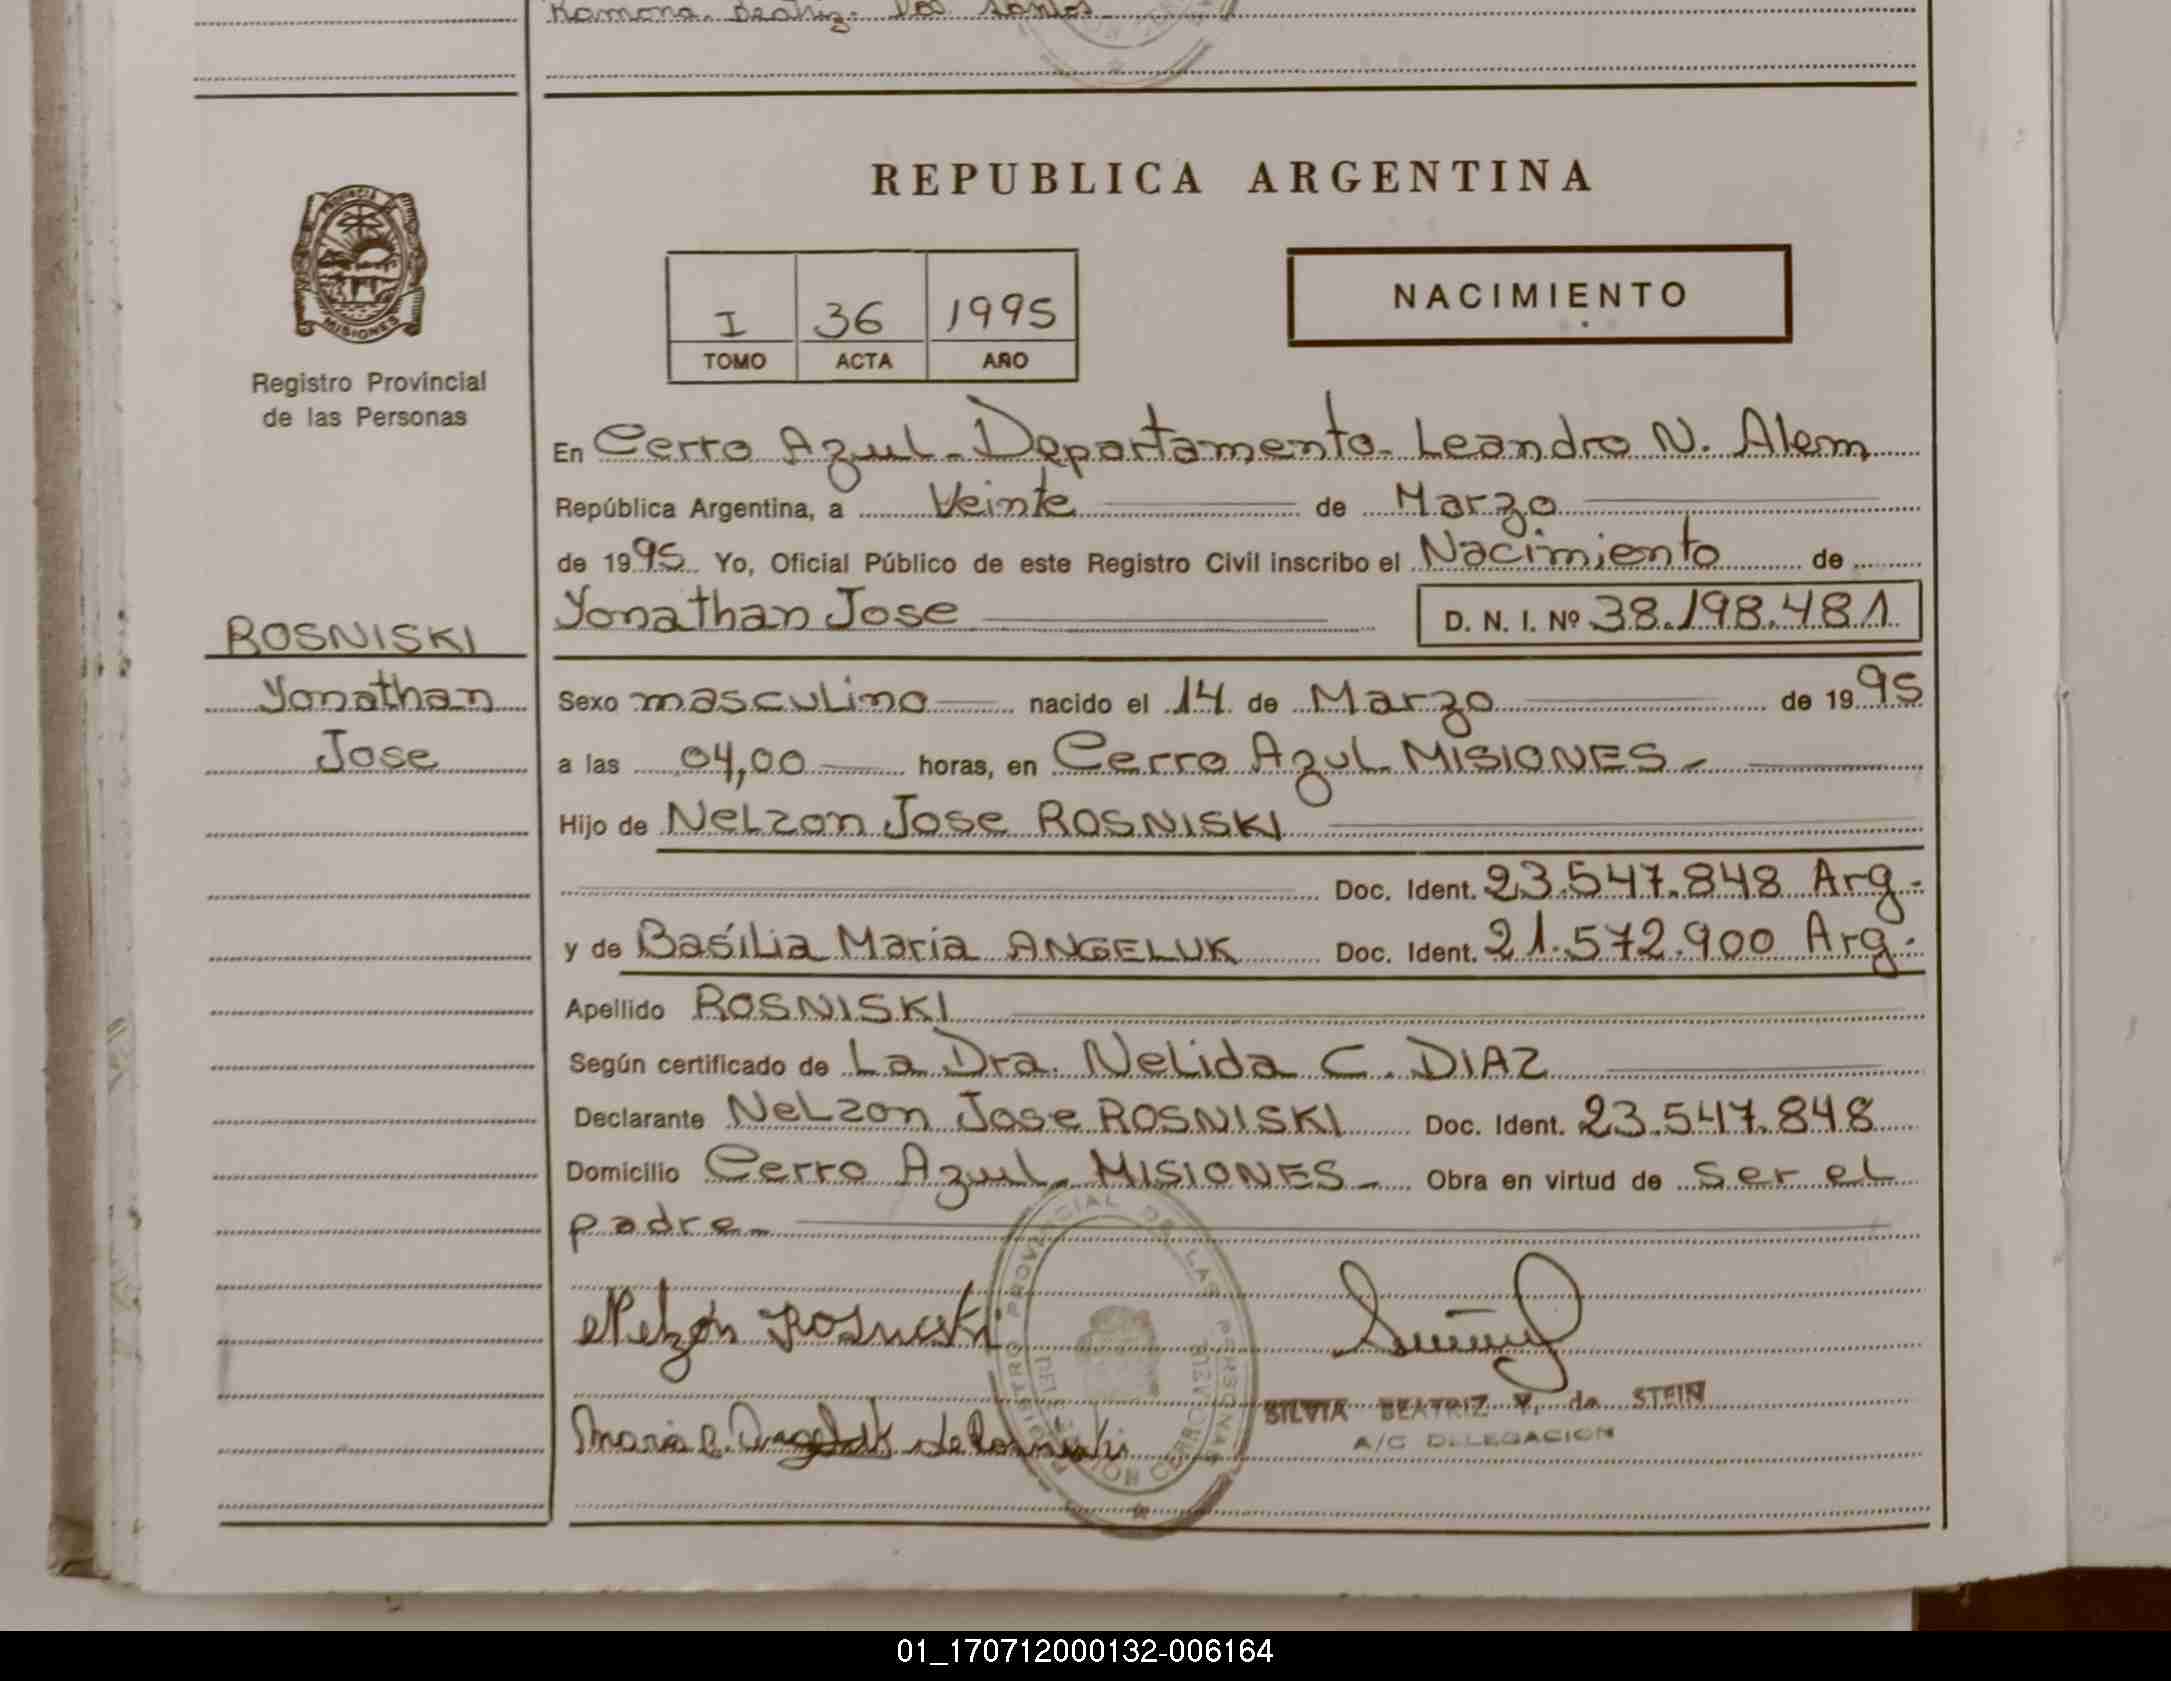 Ramona Beatriz Dos Santos
REPUBLICA ARGENTINA
PROVINCIA DE
MISIONES
Registro Provincial
de las Personas
I 36 1995
TOMO ACTA AÑO
NACIMIENTO
En Cerro Azul - Departamento - Leandro N. Alem
República Argentina, a Veinte de Marzo
de 1995 Yo, Oficial Público de este Registro Civil inscribo el Nacimiento de
Yonathan Jose D. N. I. Nº 38.198.481
ROSNISKI
Yonathan
Jose
Sexo masculino nacido el 14 de Marzo de 1995
a las 04,00 horas, en Cerro Azul MISIONES -
Hijo de Nelzon Jose ROSNISKI
Doc. Ident. 23.547.848 Arg.
y de Basilia Maria ANGELUK Doc. Ident. 21.572.900 Arg.
Apellido ROSNISKI
Según certificado de La Dra. Nelida C. DIAZ
Declarante Nelzon Jose ROSNISKI Doc. Ident. 23.547.848
Domicilio Cerro Azul - MISIONES - Obra en virtud de ser el
padre -
Nelzon Rosniski
REGISTRO PROVINCIAL DE LAS PERSONAS
CERRO AZUL
SILVIA BEATRIZ V. de STEIN
A/C DELEGACION
Maria B. Angeluk de Rosniski
01_170712000132-006164